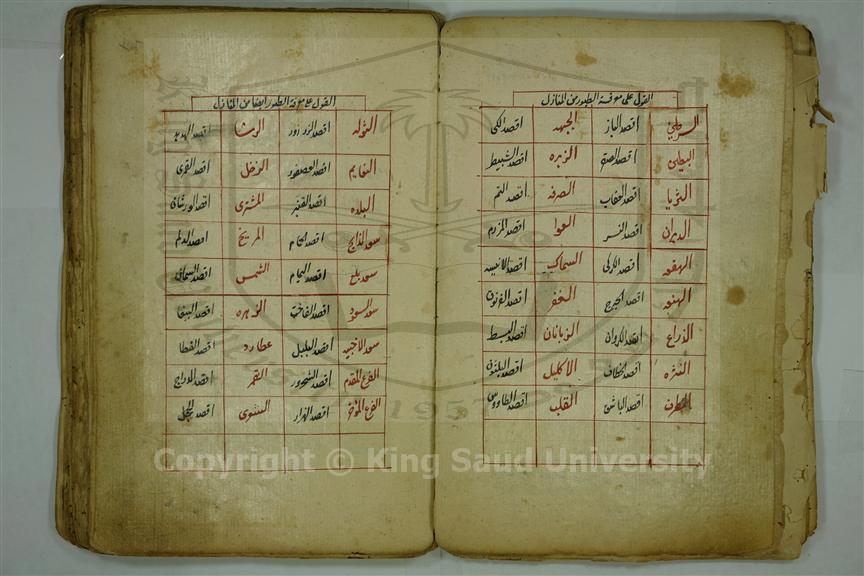 القول على معرفة الطيور من المنازل
السرطين اقصد الباز الجبهه اقصد الكى
البطين اقصد الزبره اقصد الشبيط
الثريا اقصد العقاب الصرفه اقصد التم
الدبران اقصد النسر العوا اقصد المرزم
الهقعه اقصد الكركى السماك اقصد الانيسه
الهنعه اقصد الغفر اقصد الغرنوق
الذراع اقصد الكروان الزبانان اقصد
النثره اقصد الخطاف الاكليل اقصد البلشون
الطرف اقصد الباشق القلب اقصد الطاووس
القول على معرفة الطيور ايضا من المنازل
الشوله اقصد الزرزور الرشا اقصد الهدهد
النعايم اقصد العصفور الزحل اقصد القمرى
البلده اقصد القنبر المشترى اقصد الورشان
سعد الذابح اقصد الحمام المريخ اقصد
سعد بلع اقصد اليمام الشمس اقصد السمانى
سعد السعود اقصد الفاخت الزهره اقصد الببغا
سعد الاخبيه اقصد البلبل عطارد اقصد القطا
الفرع المقدم اقصد الشحرور القمر اقصد الدراج
الفرع الموخر اقصد الهزار اقصد الحجل
1957
Copyright © King Saud University